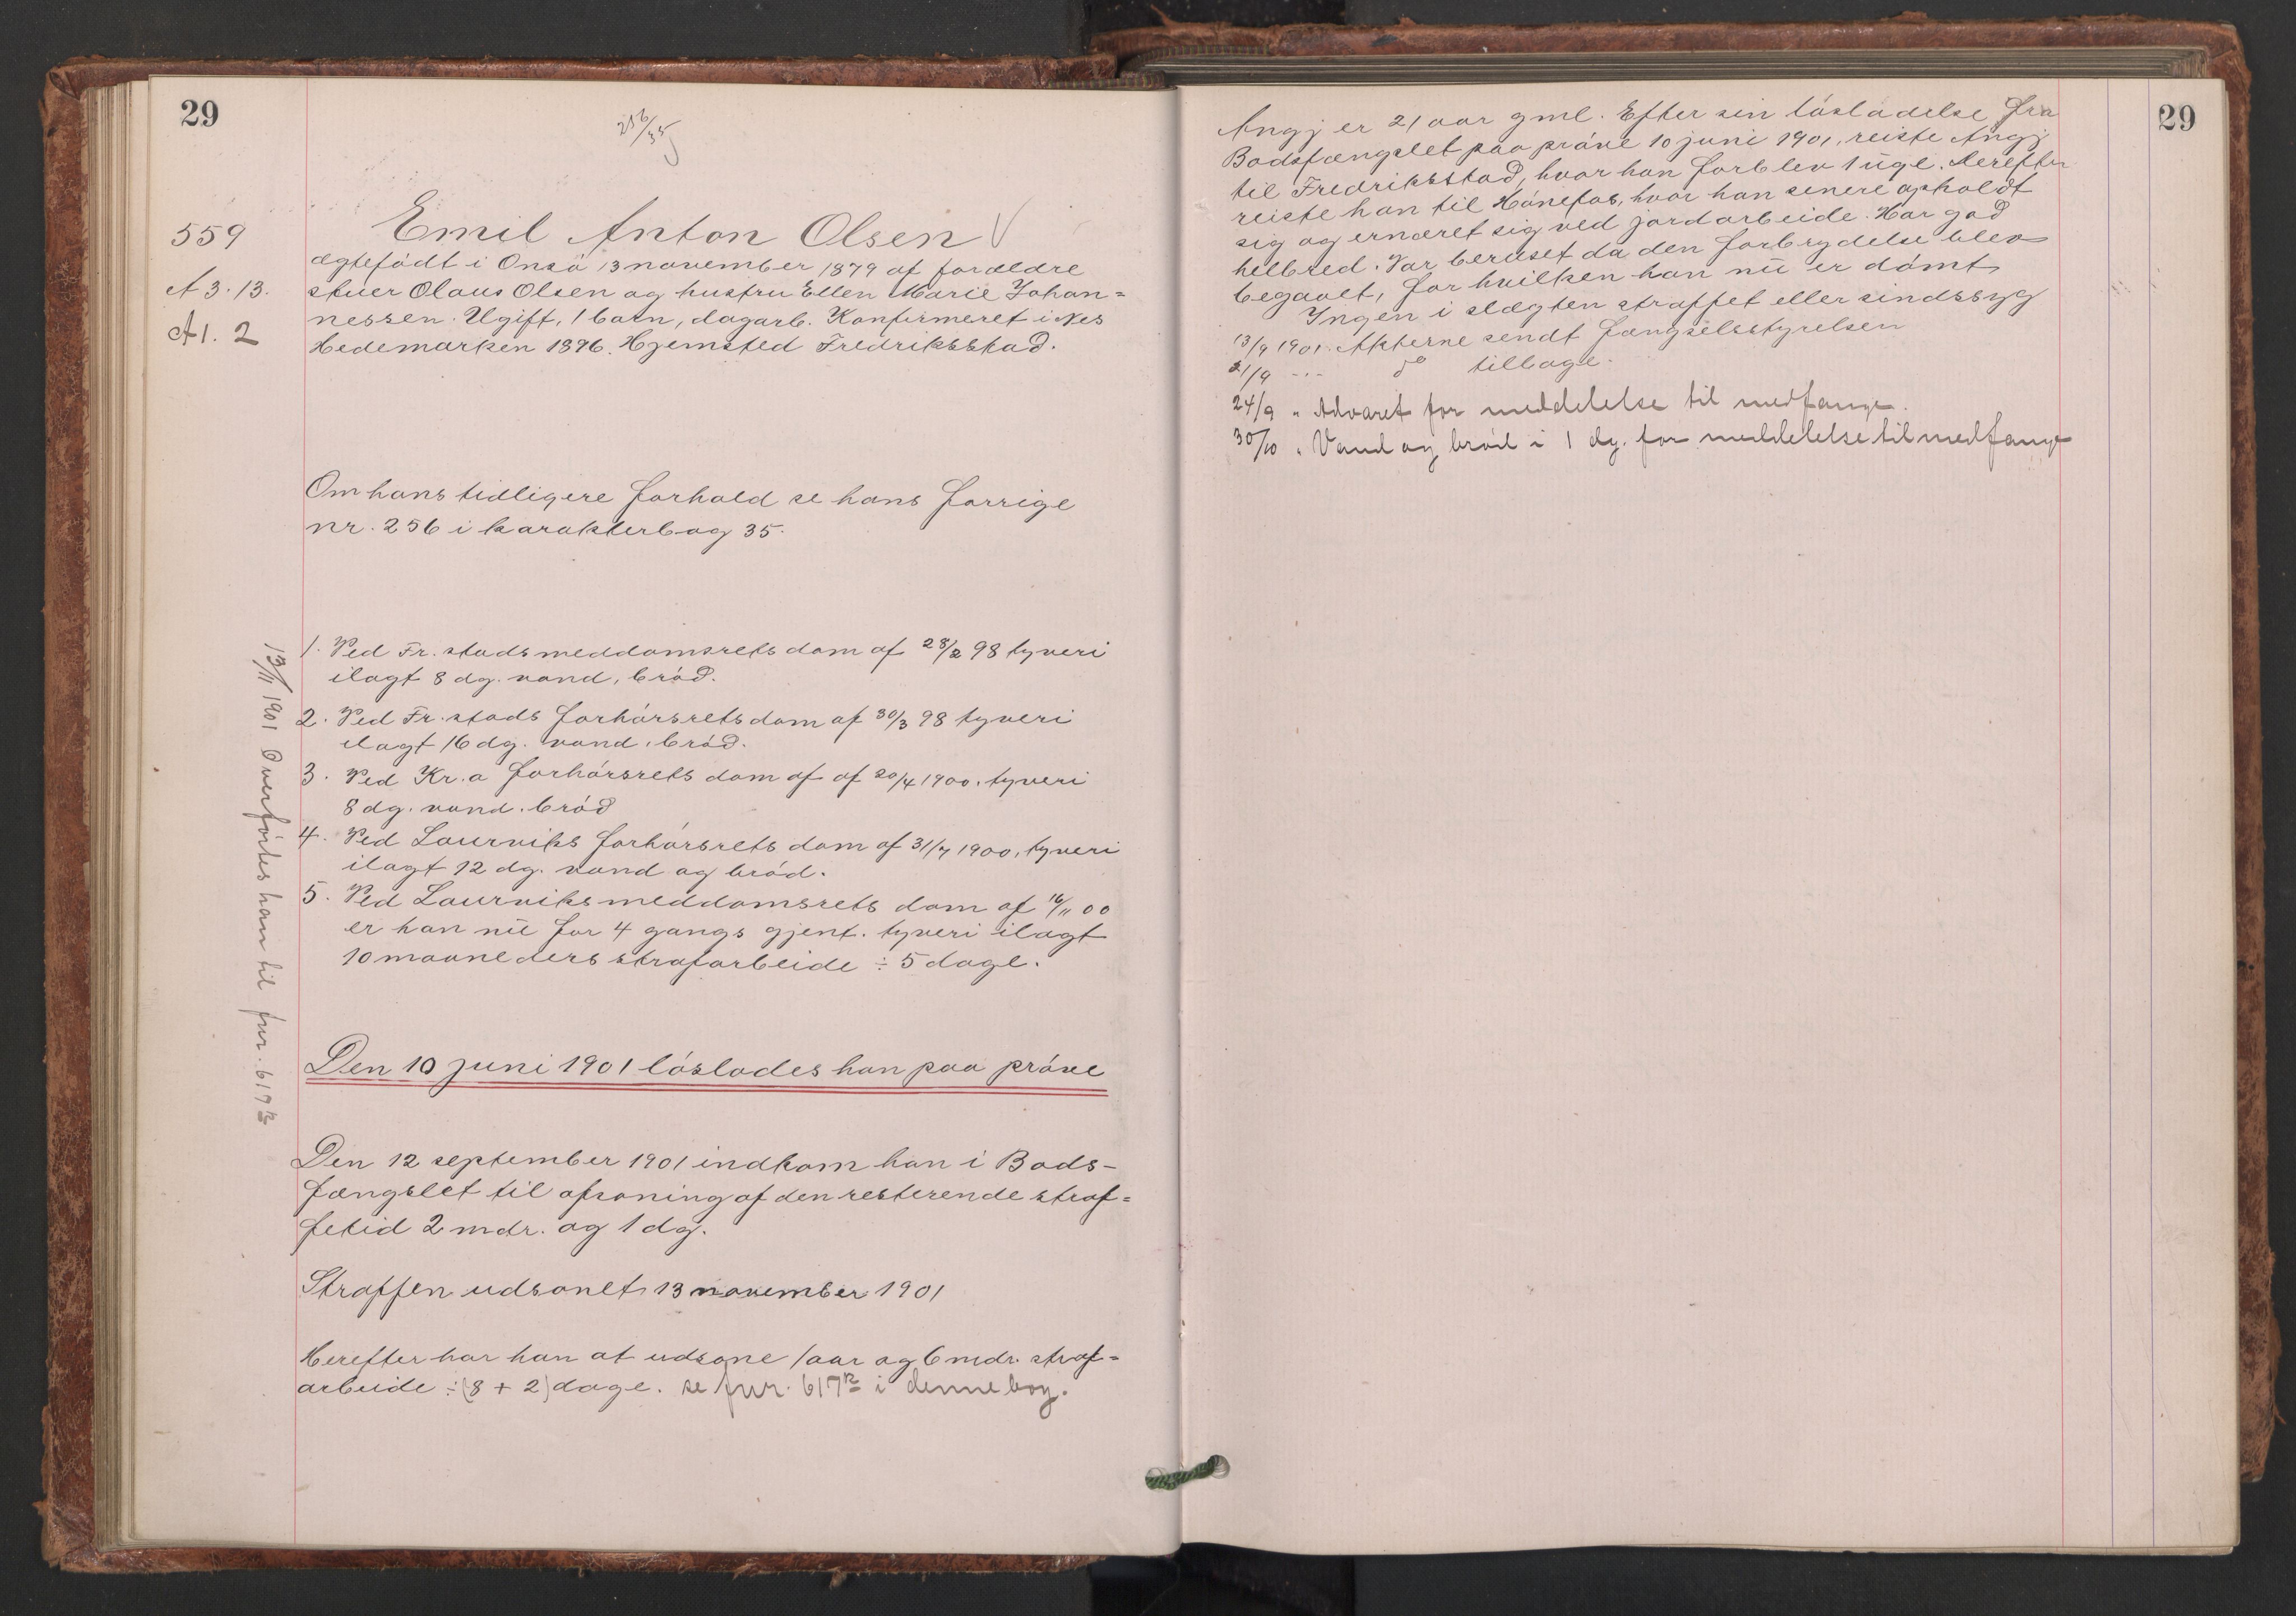 29
256/35
559
A 3.13.
A 1. 2
Emil Anton Olsen
ægtefödt i Onsö 13 november 1879 af forældre
stuer Olaus Olsen og hustru Ellen Marie Johan=
nessen. Ugift, 1 barn, dagarb. Konfirmeret i Nes
Hedemarken 1896. Hjemsted Fredriksstad.
Om hans tidligere forhold se hans forrige
nr. 256 i karakterbog 35.
1. Ved Fr. stads meddomsrets dom af 28/2 98 tyveri
ilagt 8 dg. vand, bröd.
2. Ved Fr. stads forhörsrets dom af 30/3 98 tyveri
ilagt 16 dg. vand, bröd.
3. Ved Kr.a forhörsrets dom af af 20/4 1900. tyveri
8 dg. vand. bröd
4. Ved Laurviks forhörsrets dom af 31/7 1900, tyveri
ilagt 12 dg. vand og bröd.
5. Ved Laurviks meddomsrets dom af 16/11 00
er han nu for 4 gangs gjent. tyveri ilagt
10 maaneders strafarbeide ÷ 5 dage.
13/11 1901 Overförtes han til fnr. 617 B
Den 10 juni 1901 löslodes han paa pröve
Den 12 september 1901 indkom han i Bods-
fængslet til afsoning af den resterende straf=
fetid 2 mdr. og 1 dg.
Straffen udsonet 13 november 1901
Herefter har han at udsone 1 aar og 6 mdr. straf=
arbeide ÷ (8 + 2) dage. se fnr. 617 B i denne bog.
29
Angj er 21 aar gml. Efter sin lösladelse fra
Bodsfængslet paa pröve 10 juni 1901, reiste Angj
til Fredriksstad, hvor han forblev 1 uge. Derefter
reiste han til Hönefos, hvor han senere opholdt
sig og ernæret sig ved jordarbeide. Har god
helbred. Var beruset da den forbrydelse blev
begaaet, for hvilken han nu er dömt.
Ingen i slægten straffet eller sindssyg
13/9 1901. Akterne sendt fængselsstyrelsen
21/9 -"- do tilbage.
24/9 " Advaret for meddelelse til medfange.
30/10 " Vand og bröd i 1 dg. for meddelelse til medfange